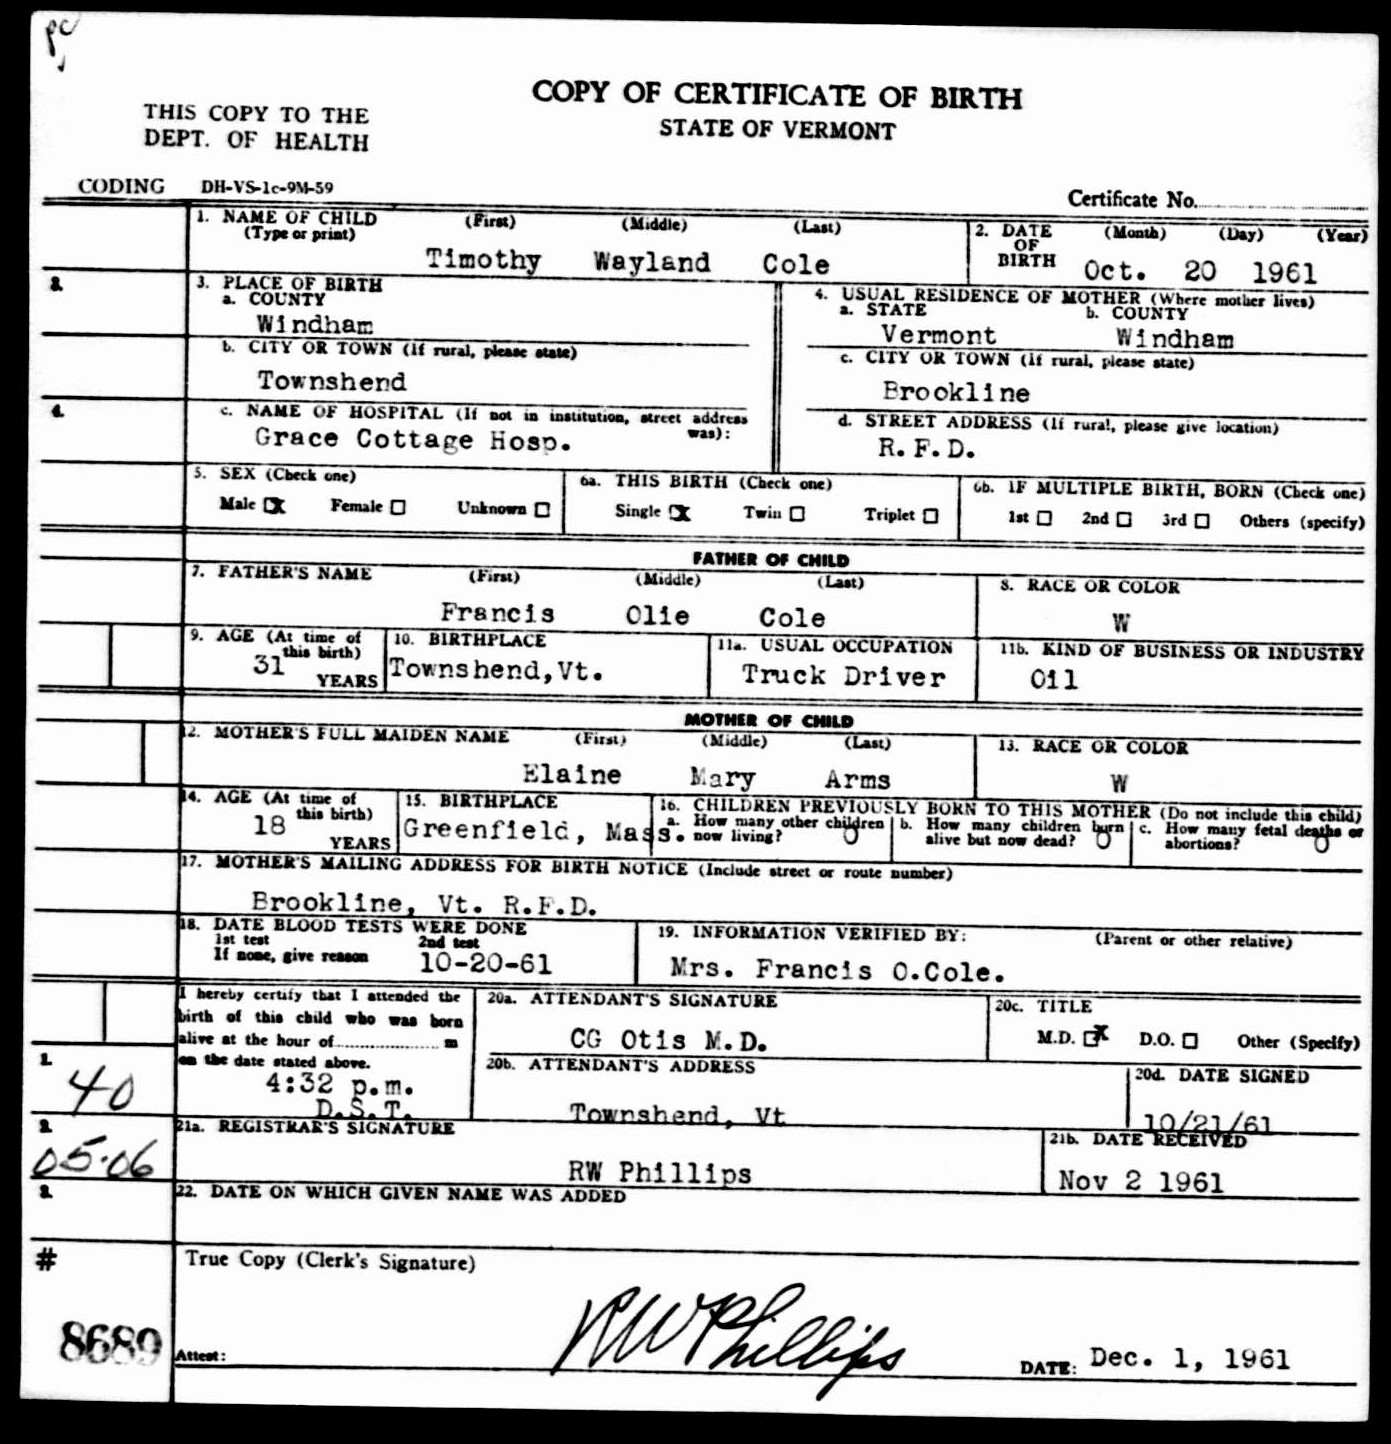 pc
COPY OF CERTIFICATE OF BIRTH
STATE OF VERMONT
THIS COPY TO THE
DEPT. OF HEALTH
CODING DH-VS-1c-9M-59
Certificate No.
1. NAME OF CHILD (First) (Middle) (Last)
(Type or print)
Timothy Wayland Cole
2. DATE OF BIRTH (Month) (Day) (Year)
Oct. 20 1961
3. PLACE OF BIRTH
a. COUNTY
Windham
b. CITY OR TOWN (If rural, please state)
Townshend
c. NAME OF HOSPITAL (If not in institution, street address was):
Grace Cottage Hosp.
4. USUAL RESIDENCE OF MOTHER (Where mother lives)
a. STATE b. COUNTY
Vermont Windham
c. CITY OR TOWN (If rural, please state)
Brookline
d. STREET ADDRESS (If rural, please give location)
R.F.D.
3.
4.
5. SEX (Check one)
Male ☒ Female ☐ Unknown ☐
6a. THIS BIRTH (Check one)
Single ☒ Twin ☐ Triplet ☐
6b. IF MULTIPLE BIRTH, BORN (Check one)
1st ☐ 2nd ☐ 3rd ☐ Others (specify)
FATHER OF CHILD
7. FATHER'S NAME (First) (Middle) (Last)
Francis Olie Cole
8. RACE OR COLOR
W
9. AGE (At time of this birth)
31 YEARS
10. BIRTHPLACE
Townshend,Vt.
11a. USUAL OCCUPATION
Truck Driver
11b. KIND OF BUSINESS OR INDUSTRY
Oil
MOTHER OF CHILD
12. MOTHER'S FULL MAIDEN NAME (First) (Middle) (Last)
Elaine Mary Arms
13. RACE OR COLOR
W
14. AGE (At time of this birth)
18 YEARS
15. BIRTHPLACE
Greenfield, Mass.
16. CHILDREN PREVIOUSLY BORN TO THIS MOTHER (Do not include this child)
a. How many other children now living? 0
b. How many children born alive but now dead? 0
c. How many fetal deaths or abortions? 0
17. MOTHER'S MAILING ADDRESS FOR BIRTH NOTICE (Include street or route number)
Brookline, Vt. R.F.D.
18. DATE BLOOD TESTS WERE DONE
1st test 2nd test
If none, give reason 10-20-61
19. INFORMATION VERIFIED BY: (Parent or other relative)
Mrs. Francis O.Cole.
I hereby certify that I attended the
birth of this child who was born
alive at the hour of m
on the date stated above.
4:32 p.m.
D.S.T.
20a. ATTENDANT'S SIGNATURE
CG Otis M.D.
20c. TITLE
M.D. ☒ D.O. ☐ Other (Specify)
20b. ATTENDANT'S ADDRESS
Townshend, Vt
20d. DATE SIGNED
10/21/61
1.
40
2.
05-06
3.
21a. REGISTRAR'S SIGNATURE
RW Phillips
21b. DATE RECEIVED
Nov 2 1961
22. DATE ON WHICH GIVEN NAME WAS ADDED
#
8689
True Copy (Clerk's Signature)
Attest: RW Phillips
DATE: Dec. 1, 1961